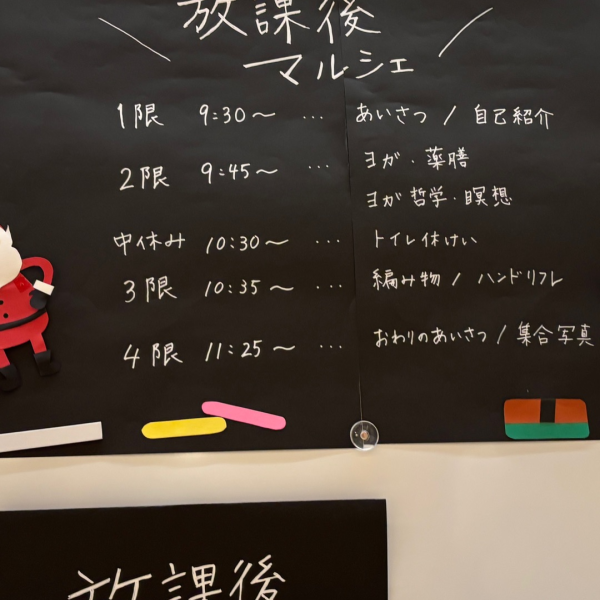 放課後
マルシェ
1限 9:30〜 … あいさつ / 自己紹介
2限 9:45〜 … ヨガ・薬膳
ヨガ哲学・瞑想
中休み 10:30〜 … トイレ休けい
3限 10:35〜 … 編み物 / ハンドリフレ
4限 11:25〜 … おわりのあいさつ / 集合写真
放課後